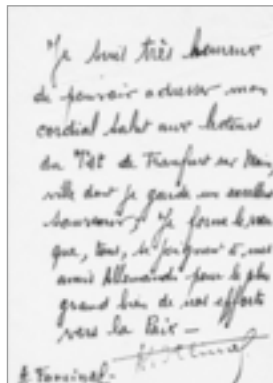 "Je suis très heureux
de pouvoir adresser mon
cordial salut aux lecteurs
du de Francfurt sur Mein,
ville dont je garde un excellent
souvenir. Je forme le vœu
que, tous, se joignent à nos
amis Allemands pour le plus
grand bien de nos efforts
vers la Paix —